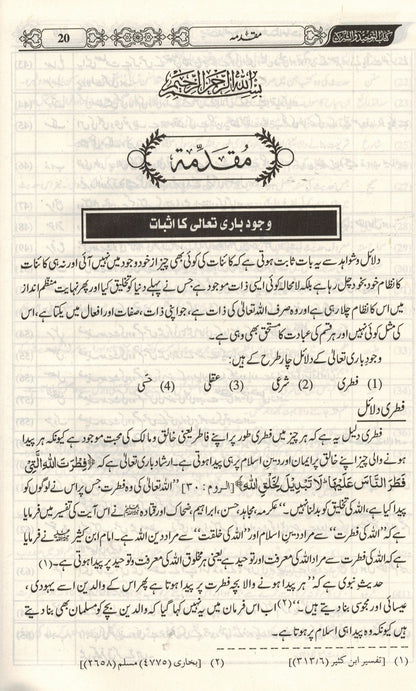 کتاب التوحید والشرک مقدمہ 20
بسم اللہ الرحمن الرحیم
مُقدِّمة
وجود باری تعالیٰ کا اثبات
دلائل و شواہد سے یہ بات ثابت ہوتی ہے کہ کائنات کی کوئی بھی چیز از خود وجود میں نہیں آئی اور نہ ہی کائنات
کا نظام خود بخود چل رہا ہے بلکہ لامحالہ کوئی ایسی ذات موجود ہے جس نے پہلے دنیا کو تخلیق کیا اور پھر نہایت منظم انداز
میں اس کا نظام چلا رہی ہے اور وہ صرف اللہ تعالیٰ کی ذات ہے، جو اپنی ذات، صفات اور افعال میں یکتا ہے، اس
کی مثل کوئی نہیں اور ہر قسم کی عبادت کا مستحق بھی وہی ہے۔
وجود باری تعالیٰ کے دلائل چار طرح کے ہیں:
(1) فطری (2) شرعی (3) عقلی (4) حسّی
فطری دلائل
فطری دلیل یہ ہے کہ ہر چیز میں فطری طور پر اپنے فاطر یعنی خالق و مالک کی محبت موجود ہے کیونکہ ہر پیدا
ہونے والی چیز اپنے خالق پر ایمان اور دین اسلام پر ہی پیدا ہوتی ہے۔ ارشاد باری تعالیٰ ہے کہ ﴿فِطْرَتَ اللّٰهِ الَّتِیْ
فَطَرَ النَّاسَ عَلَیْهَا لَا تَبْدِیْلَ لِخَلْقِ اللّٰهِ﴾ [الروم : ۳۰] "اللہ تعالیٰ کی وہ فطرت جس پر اس نے لوگوں کو
پیدا کیا ہے، اللہ کی تخلیق کو بدلنا نہیں۔" عکرمہ، مجاہد، حسن، ابراہیم، ضحاک اور قتادہ نے اس آیت کی تفسیر میں فرمایا
ہے کہ "اللہ کی فطرت" سے مراد دین اسلام اور "اللہ کی خلقت" سے مراد دین اللہ ہے۔ امام ابن کثیر نے فرمایا
ہے کہ اللہ کی فطرت سے مراد اللہ کی معرفت اور توحید ہے یعنی ہر مخلوق اللہ کی معرفت و توحید پر پیدا ہوتی ہے۔(۱)
حدیث نبوی ہے کہ "ہر پیدا ہونے والا بچہ فطرت پر پیدا ہوتا ہے پھر اس کے والدین اسے یہودی،
عیسائی اور مجوسی بنا دیتے ہیں۔"(۲) اب اس فرمان میں یہ نہیں کہا گیا کہ والدین بچے کو مسلمان بھی بنا دیتے
ہیں کیونکہ وہ پیدا ہی اسلام پر ہوتا ہے۔
(۱) [تفسیر ابن کثیر (۳۱۳/۶)] (۲) [بخاری (۴۷۷۵) مسلم (۲۶۵۸)]